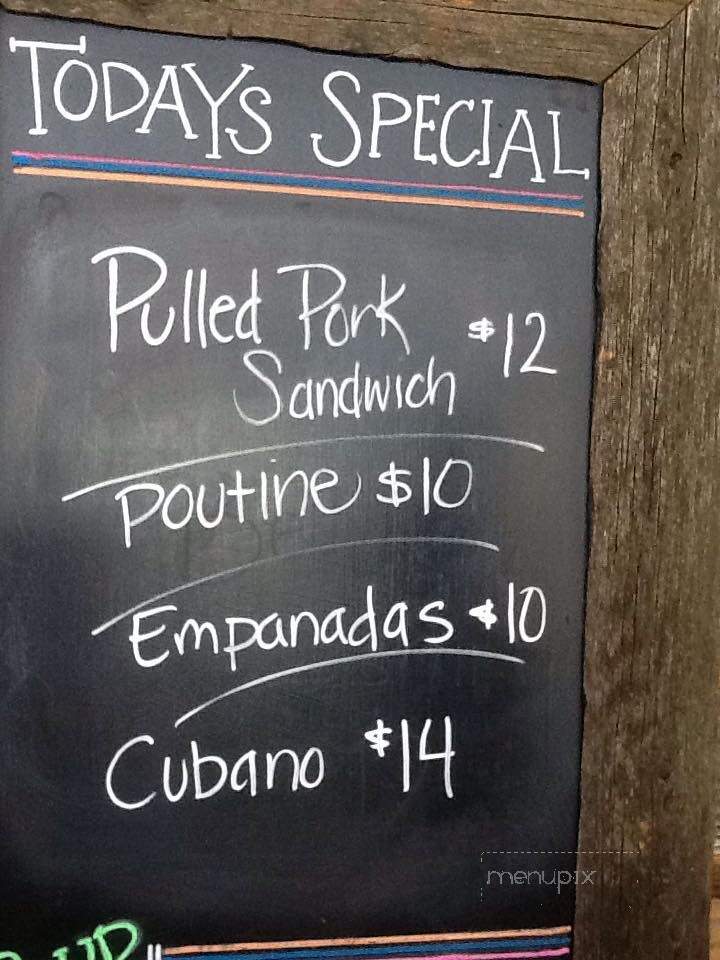 TODAYS SPECIAL
Pulled Pork $12
Sandwich
Poutine $10
Empanadas $10
Cubano $14
menupix
UP